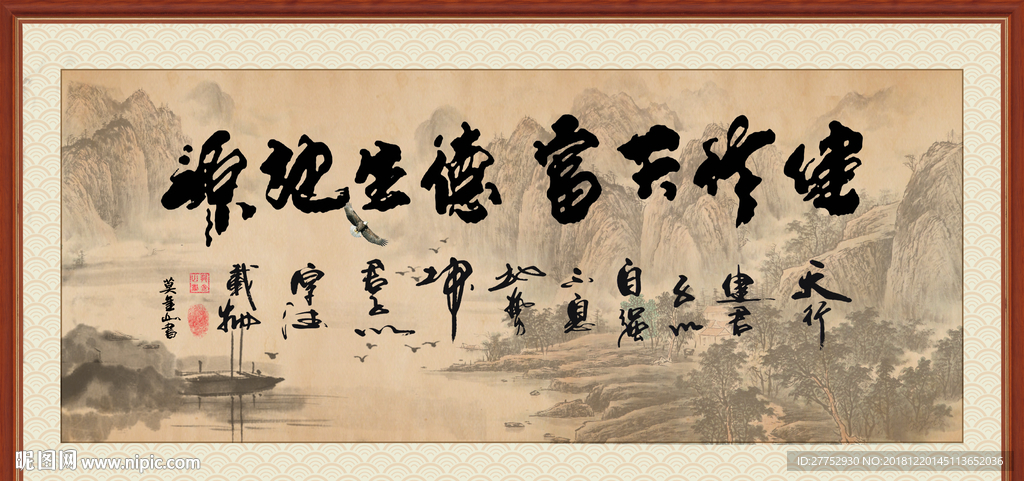 健
富
德生地源
天行
健君
子以
自强
不息
地勢
坤
君子以
厚德
載物
昵图网 www.nipic.com
ID:27752930 NO:20181220145113652036